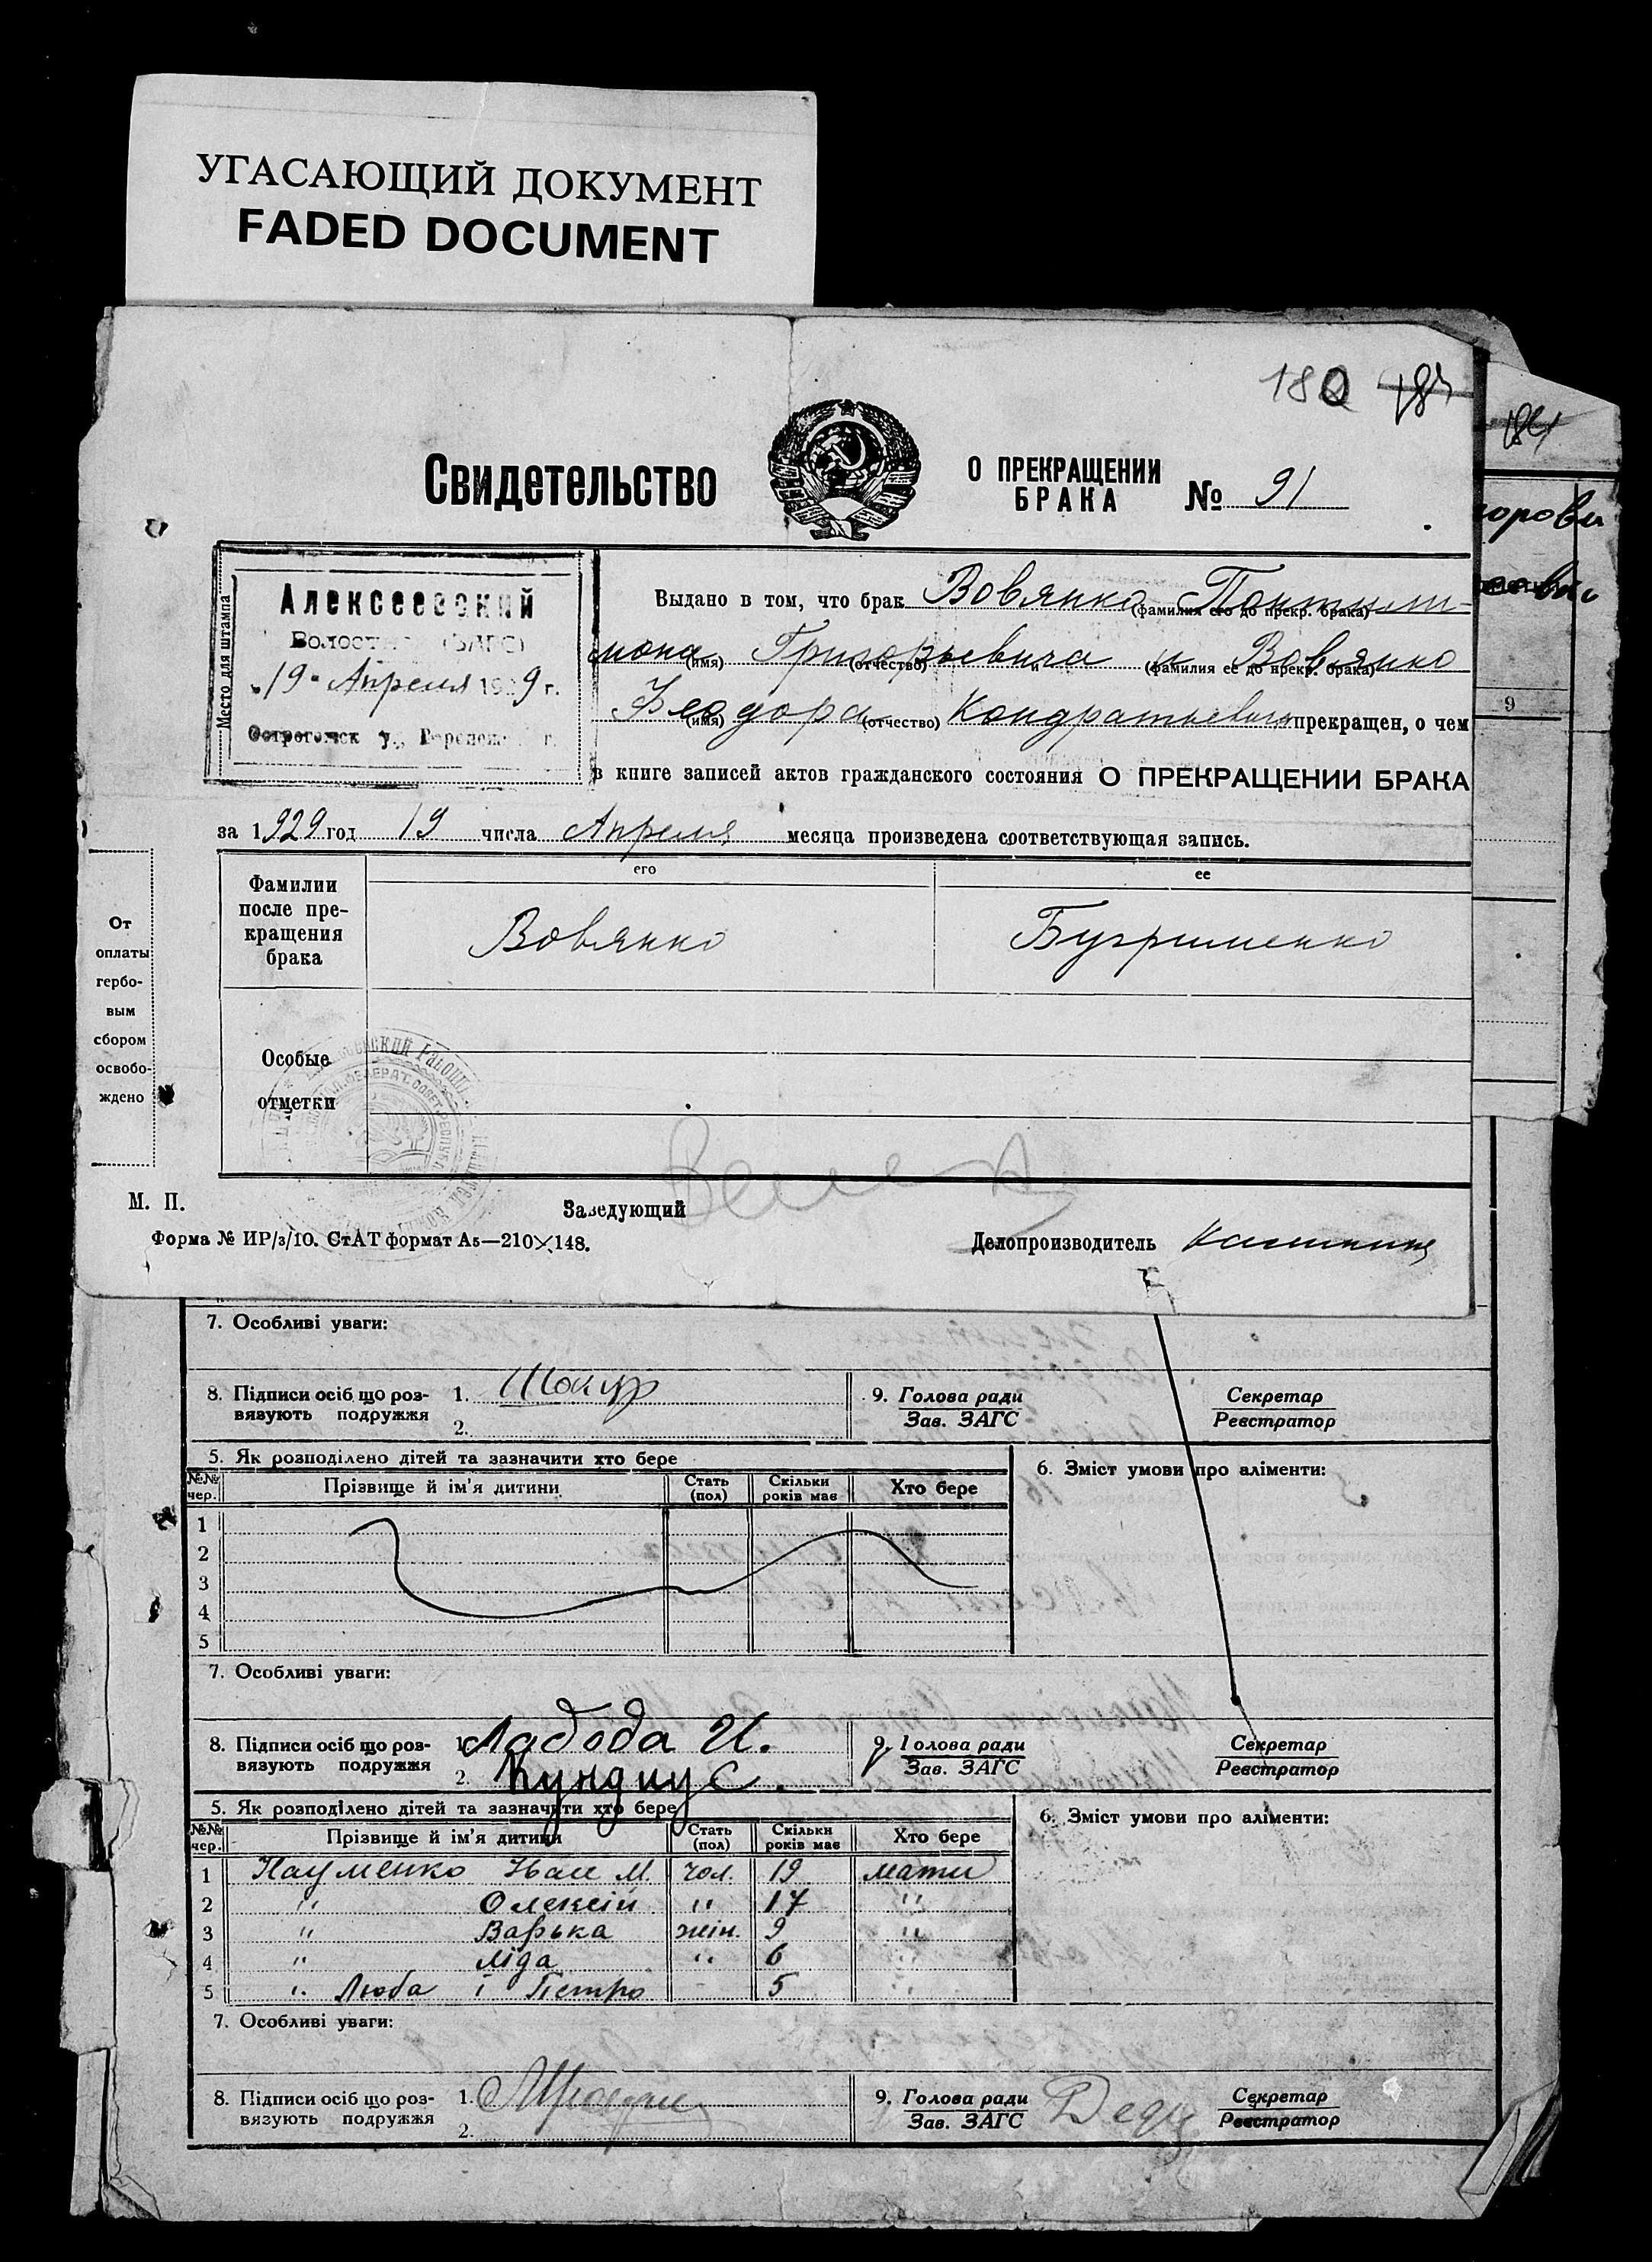 УГАСАЮЩИЙ ДОКУМЕНТ
FADED DOCUMENT
180
Свидетельство
О ПРЕКРАЩЕНИИ
БРАКА
№ 91
Место для штампа
Алексеевский
Волостн (ЗАГС)
"19" Апреля 1929 г.
Острогожск у., Воронеж г.
Выдано в том, что брак Вовянко Пантили-
(фамилия его до прекр. брака)
мона Григорьевича и Вовянко
(имя) (отчество) (фамилия ее до прекр. брака)
Феодора Кондратьевича прекращен, о чем
(имя) (отчество)
в книге записей актов гражданского состояния О ПРЕКРАЩЕНИИ БРАКА
за 1929 год 19 числа Апреля месяца произведена соответствующая запись.
Фамилии
после пре-
кращения
брака
его
ее
Вовянко
Бугрименко
От
оплаты
гербо-
вым
сбором
освобо-
ждено
Особые
отметки
М. П.
Заведующий
Форма № ИР/з/10. СтАТ формат А5—210×148.
Делопроизводитель
9
7. Особливі уваги:
8. Підписи осіб що роз-
вязують подружжя
1. Шокур
2.
9. Голова ради
Зав. ЗАГС
Секретар
Реєстратор
5. Як розподілено дітей та зазначити хто бере
6. Зміст умови про аліменти:
№№ чер.
Прізвище й ім'я дитини
Стать (пол)
Скільки років має
Хто бере
1
2
3
4
5
7. Особливі уваги:
8. Підписи осіб що роз-
вязують подружжя
1. Лабода И.
2. Кундиус.
9. Голова ради
Зав. ЗАГС
Секретар
Реєстратор
5. Як розподілено дітей та зазначити хто бере
6. Зміст умови про аліменти:
№№ чер.
Прізвище й ім'я дитини
Стать (пол)
Скільки років має
Хто бере
1 Науменко Іван М. чол. 19 мати
2 " Олексій " 17 "
3 " Варька жін. 9 "
4 " Ліда " 6 "
5 " Люба і Петро - 5 "
7. Особливі уваги:
8. Підписи осіб що роз-
вязують подружжя
1.
2.
9. Голова ради
Зав. ЗАГС
Секретар
Реєстратор